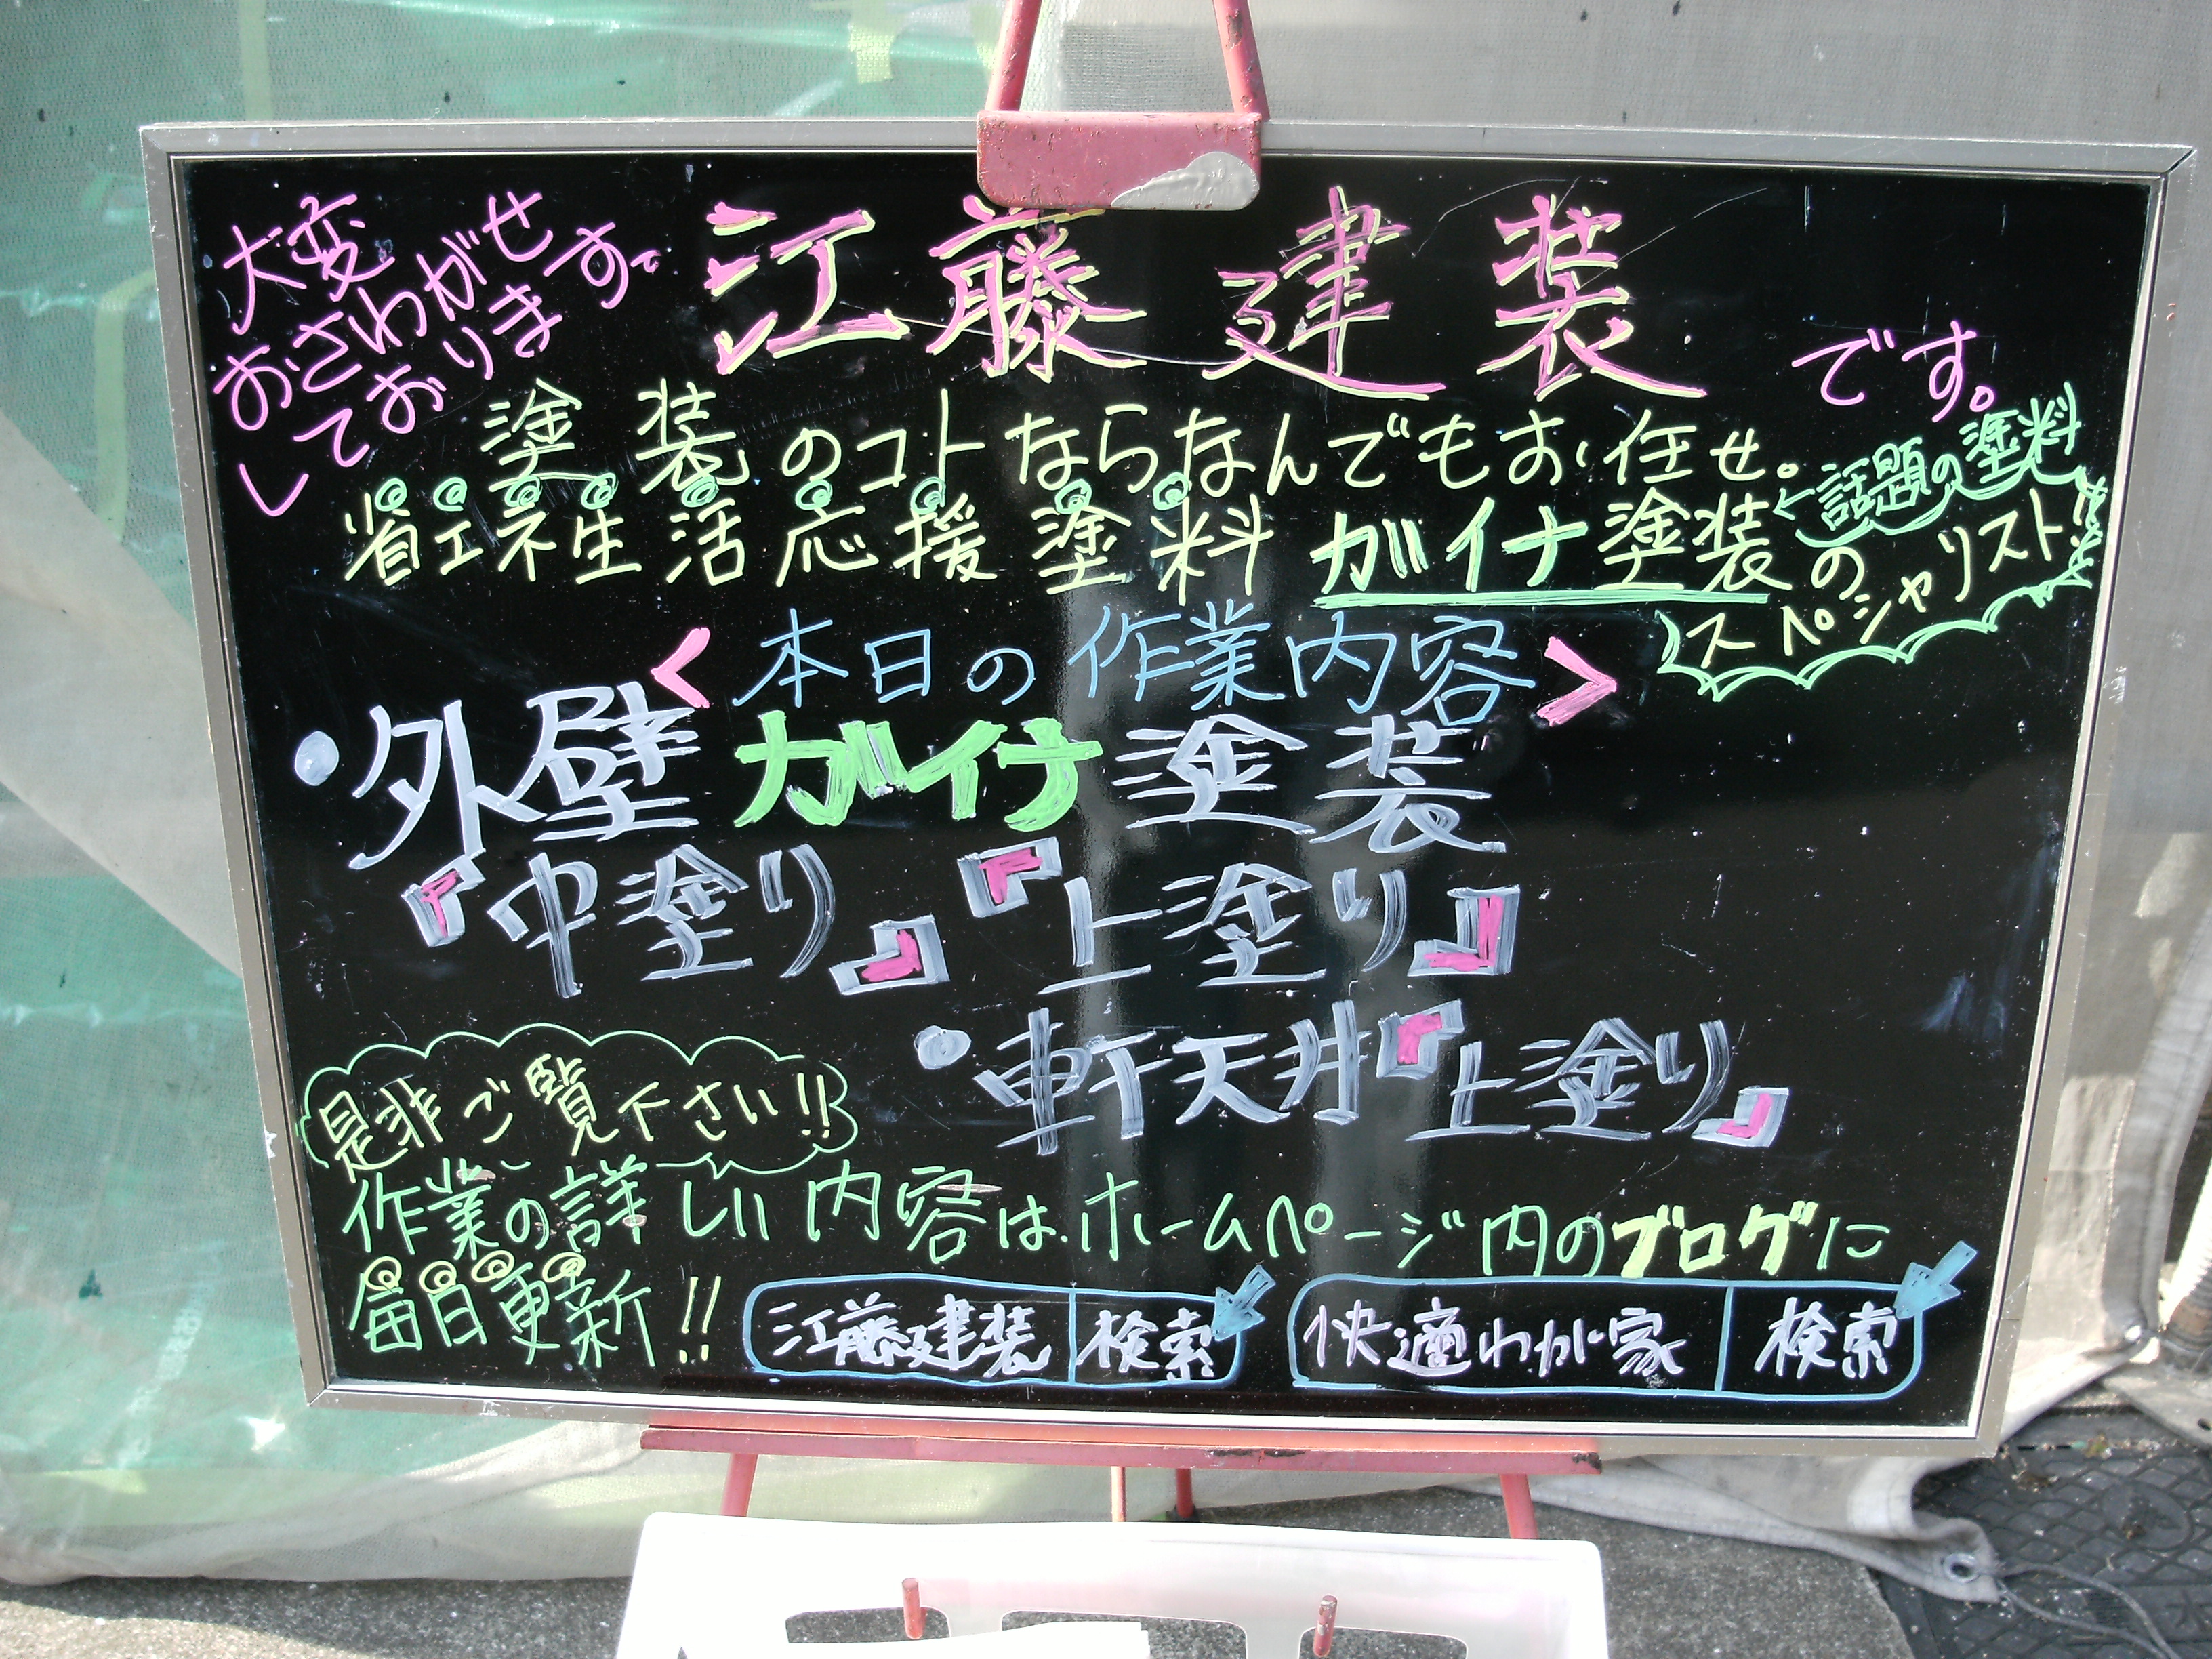 大変
おさわがせ
しております
江藤建装
です。
塗装のコトならなんでもお任せ。
省エネ生活応援塗料 ガイナ塗装の
スペシャリスト!!
←話題の塗料
<本日の作業内容>
・外壁ガイナ塗装
『中塗り』『上塗り』
・軒天井『上塗り』
是非ご覧下さい!!
作業の詳しい内容はホームページ内のブログに
毎日更新!!
江藤建装 検索
快適わが家 検索